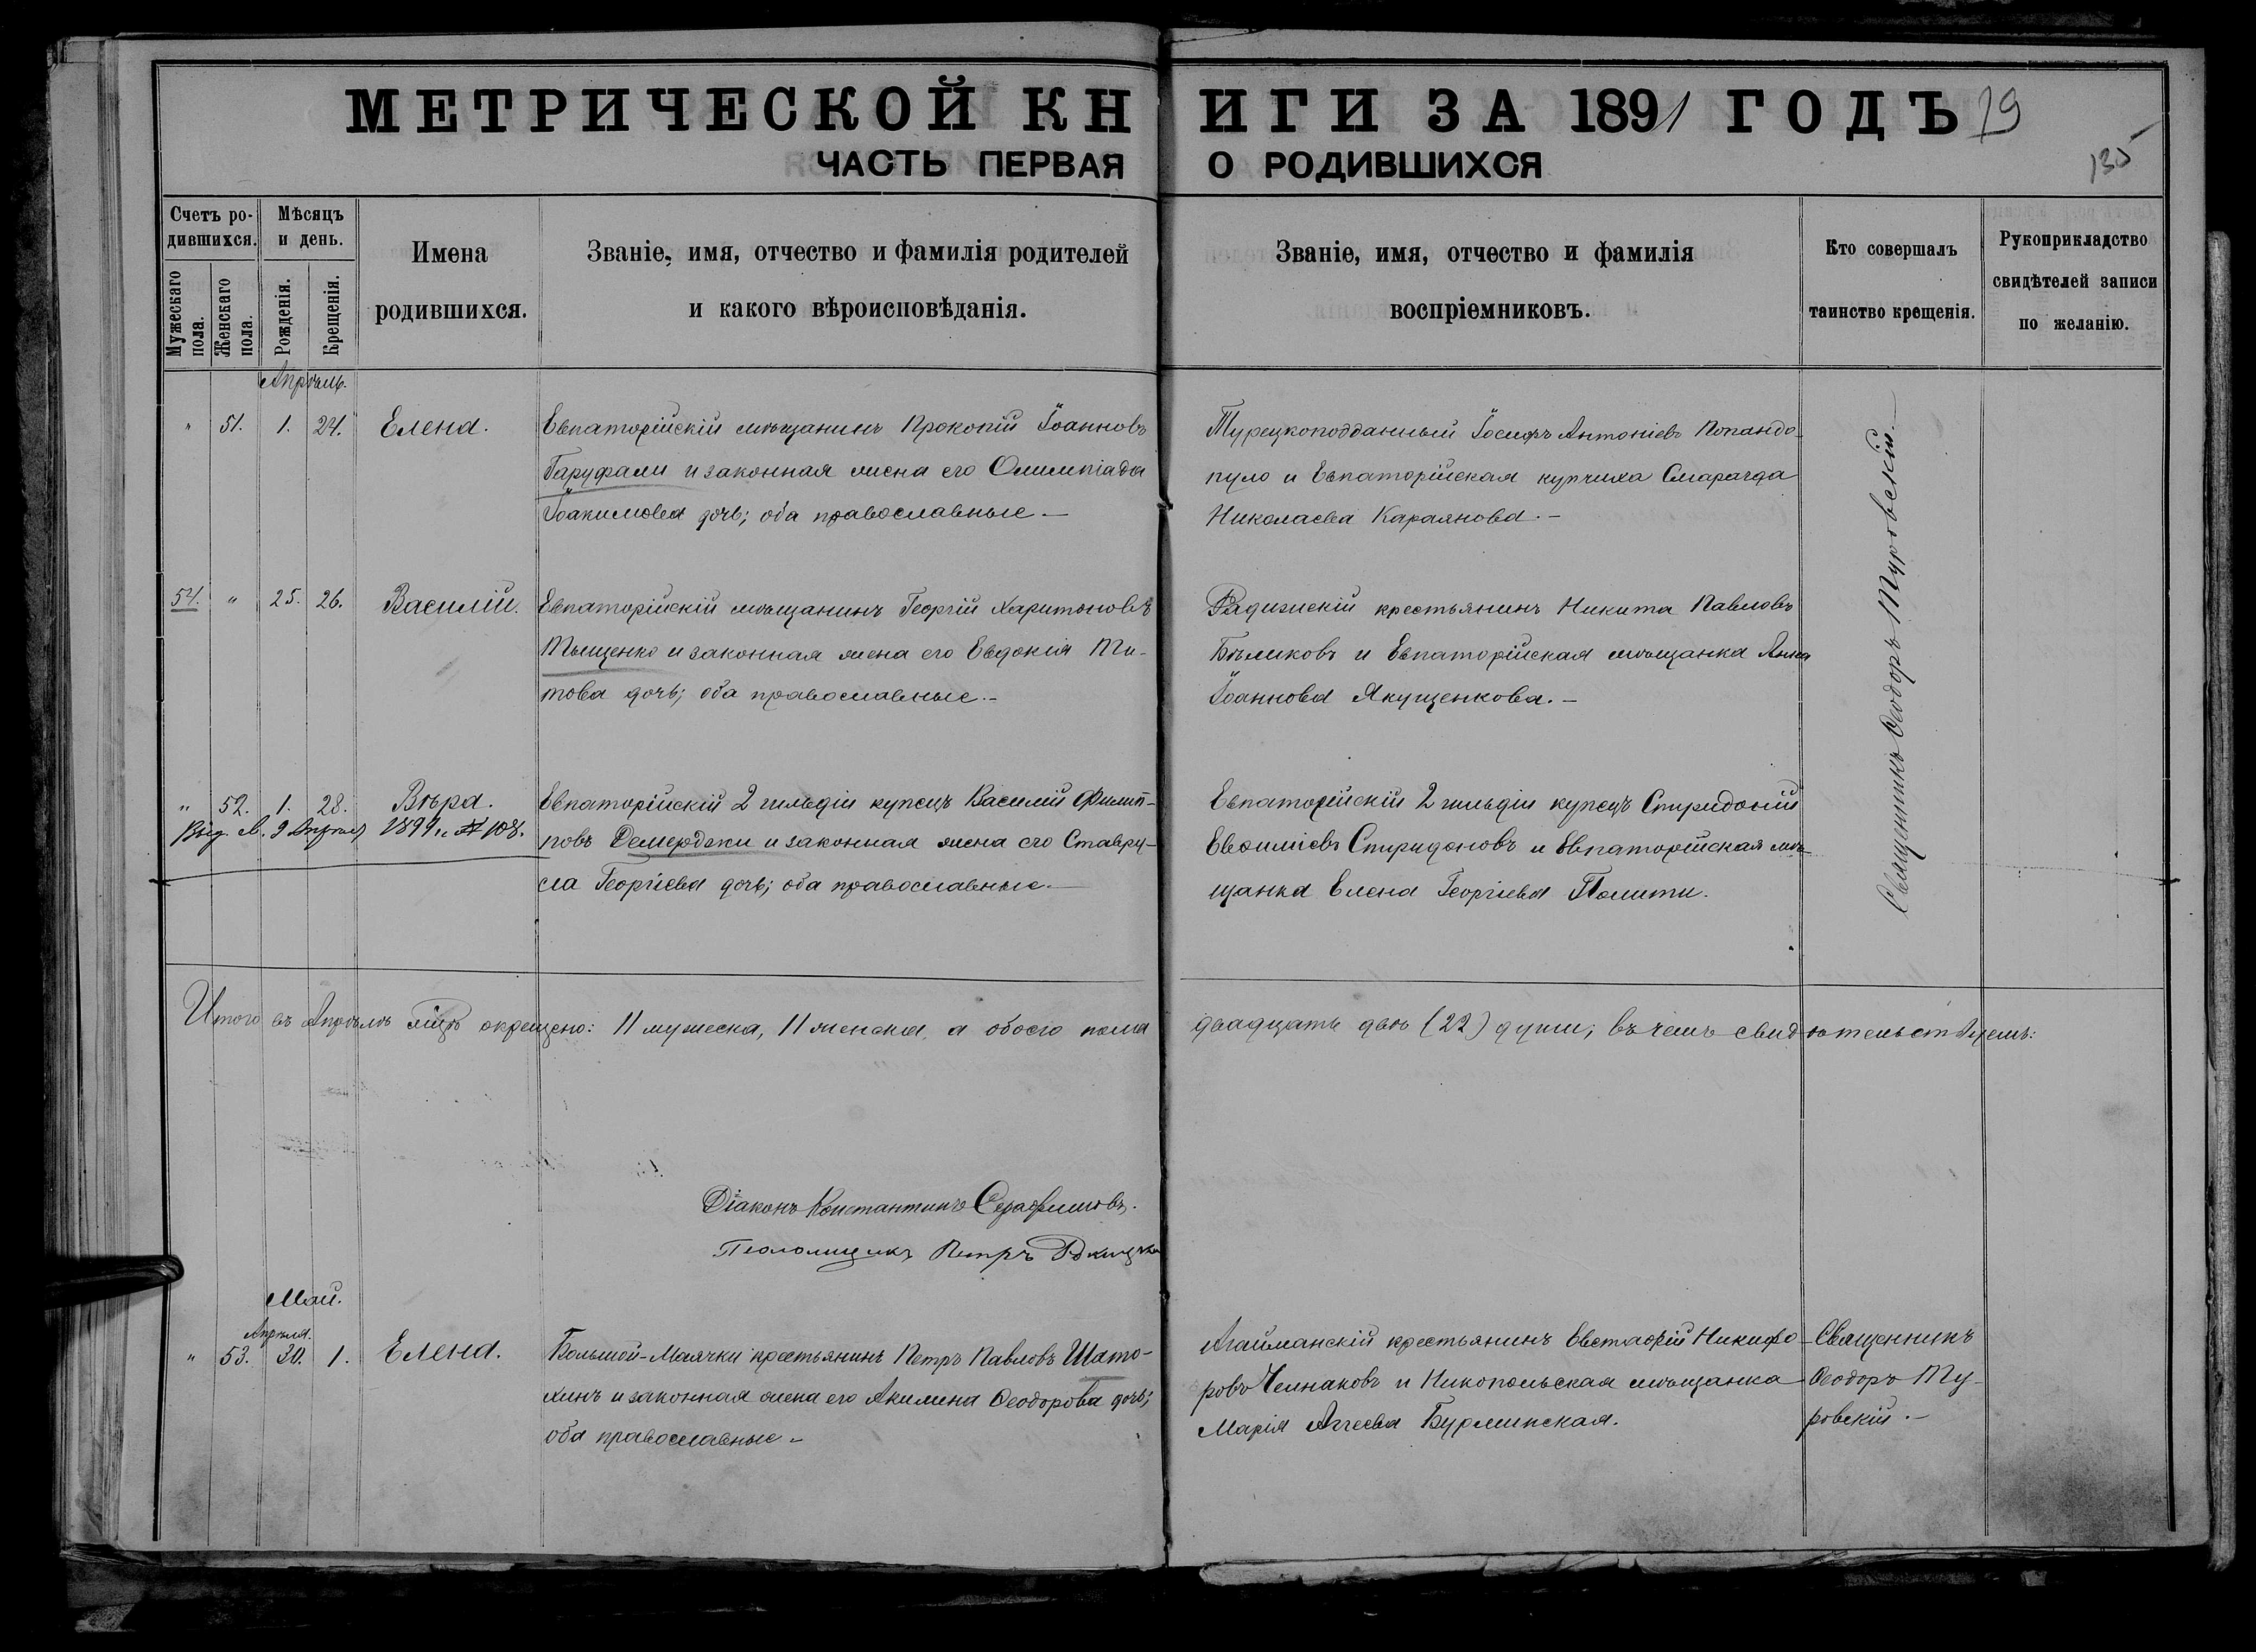 МЕТРИЧЕСКОЙ КНИГИ ЗА 1891 ГОДЪ 79
135
ЧАСТЬ ПЕРВАЯ О РОДИВШИХСЯ
Счетъ родившихся.
Мужескаго пола.
Женскаго пола.
Мѣсяцъ и день.
Рожденія.
Крещенія.
Имена
родившихся.
Званіе, имя, отчество и фамилія родителей
и какого вѣроисповѣданія.
Званіе, имя, отчество и фамилія
воспріемниковъ.
Кто совершалъ
таинство крещенія.
Рукоприкладство
свидѣтелей записи
по желанію.
Апрѣль.
" 51. 1. 24. Елена.
Евпаторійскій мѣщанинъ Прокопій Іоанновъ
Гаруфали и законная жена его Олимпіада
Іоакимова дочь; оба православные.—
Турецкоподданный Іосифъ Антоніевъ Попандо-
пуло и Евпаторійская купчиха Смарагда
Николаева Караянова.—
54. " 25. 26. Василій.
Евпаторійскій мѣщанинъ Георгій Харитоновъ
Тыщенко и законная жена его Евдокія Ти-
това дочь; оба православные.—
крестьянинъ Никита Павловъ
Бѣликовъ и Евпаторійская мѣщанка Анна
Іоаннова Якущенкова.—
" 52. 1. 28. Вѣра.
Выд. М. 9 Апрѣля 1899 г. № 108.
Евпаторійскій 2 гильдіи купецъ Василій Филип-
повъ Демерджи и законная жена его Ставру-
ла Георгіева дочь; оба православные.—
Евпаторійскій 2 гильдіи купецъ Спиридоній
Евѳиміевъ Спиридоновъ и Евпаторійская мѣ-
щанка Елена Георгіева Полити.
Священникъ Ѳеодоръ Туровскій.—
Итого въ Апрѣлѣ мцѣ окрещено: 11 мужеска, 11 женска, а обоего пола двадцать двѣ (22) души; въ чемъ свидѣтельствуемъ:
Діаконъ Константинъ Серафимовъ.
Псаломщикъ Петръ
Май.
Апрѣля.
" 53. 30. 1. Елена.
Большой-Маячки крестьянинъ Петръ Павловъ Шато-
хинъ и законная жена его Акилина Ѳеодорова дочь;
оба православные.—
Агайманскій крестьянинъ Евстафій Никифо-
ровъ Чемнаковъ и Никопольская мѣщанка
Марія Аггеева Бурлинская.
Священникъ
Ѳеодоръ Ту-
ровскій.—